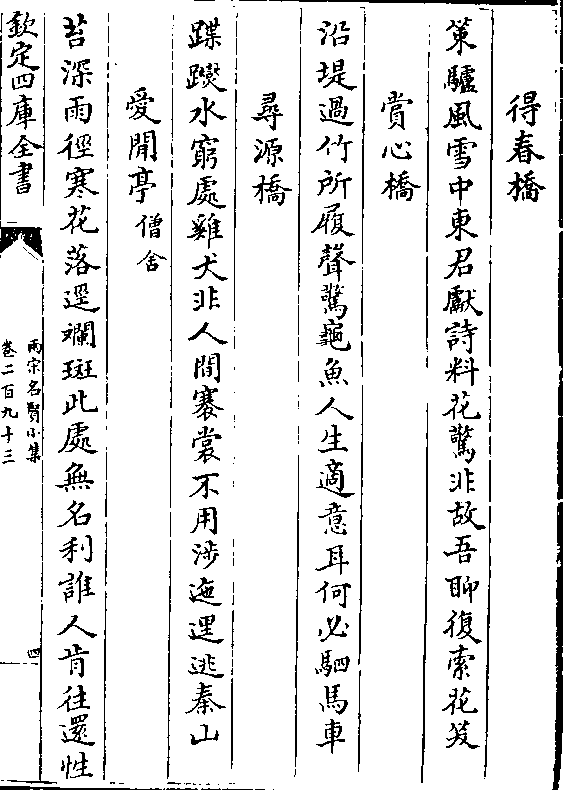 得春橋
策驢風雪中東君獻詩料花驚非故吾聊復索花笑
賞心橋
沿堤過竹所履聲驚龜魚人生適意耳何必駟馬車
尋源橋
蹀躞水窮處雞犬非人間褰裳不用涉迤邐逃秦山
愛閒亭僧舍
苔深雨徑寒花落逕斕斑此處無名利誰人肯往還性
欽定四庫全書
兩宋名賢小集
卷二百九十三
四